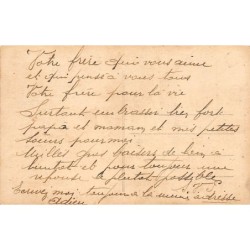 Votre frère qui vous aime
et qui pense à vous tous
Votre frère pour la vie
Surtout embrassé bien fort
papa et maman et mes petites
soeurs pour moi
Milles gros baisers de loin à
bientot et pour toujours une
reponse à plutot possible
Ecrivez moi toujours à la même adresse
Adieu